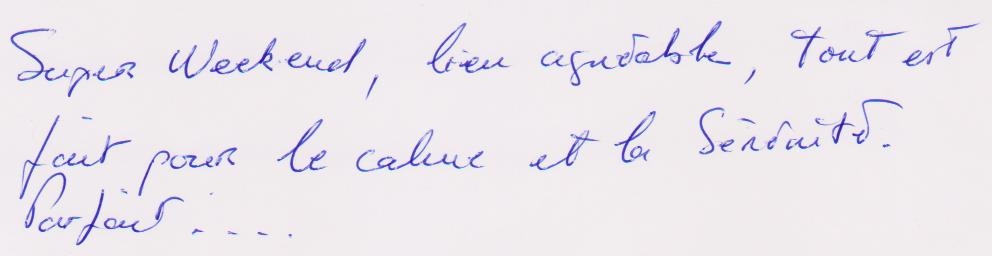 Super Weekend, lieu agréable, tout est
fait pour le calme et la Sérénité.
Parfait....